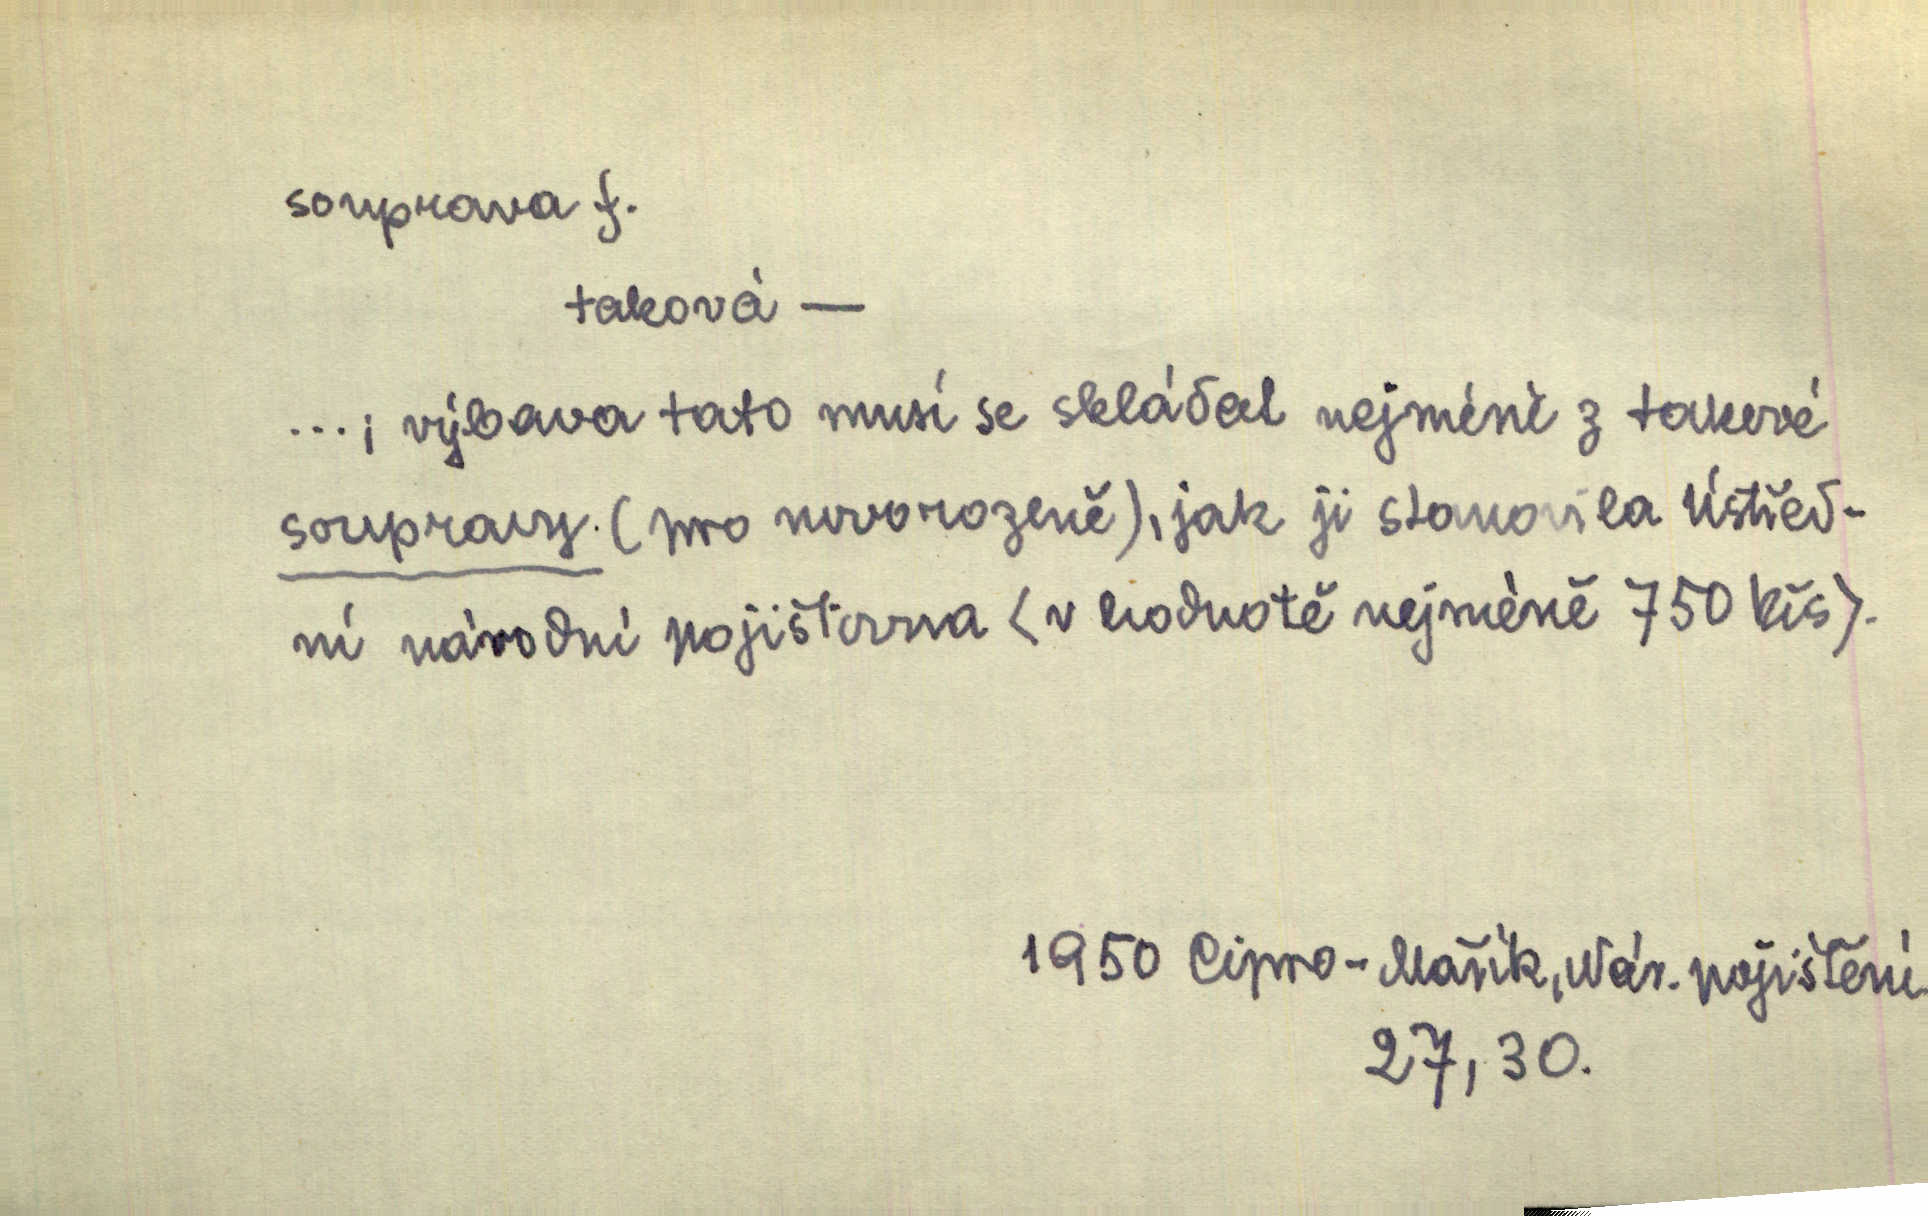 souprava f.
taková —
...; výbava tato musí se skládat nejméně z takové
soupravy (pro novorozeně), jak ji stanovila Ústřed-
ní národní pojišťovna (v hodnotě nejméně 750 Kčs).
1950 Cipro-Mařík, Nár. pojištění
27, 30.